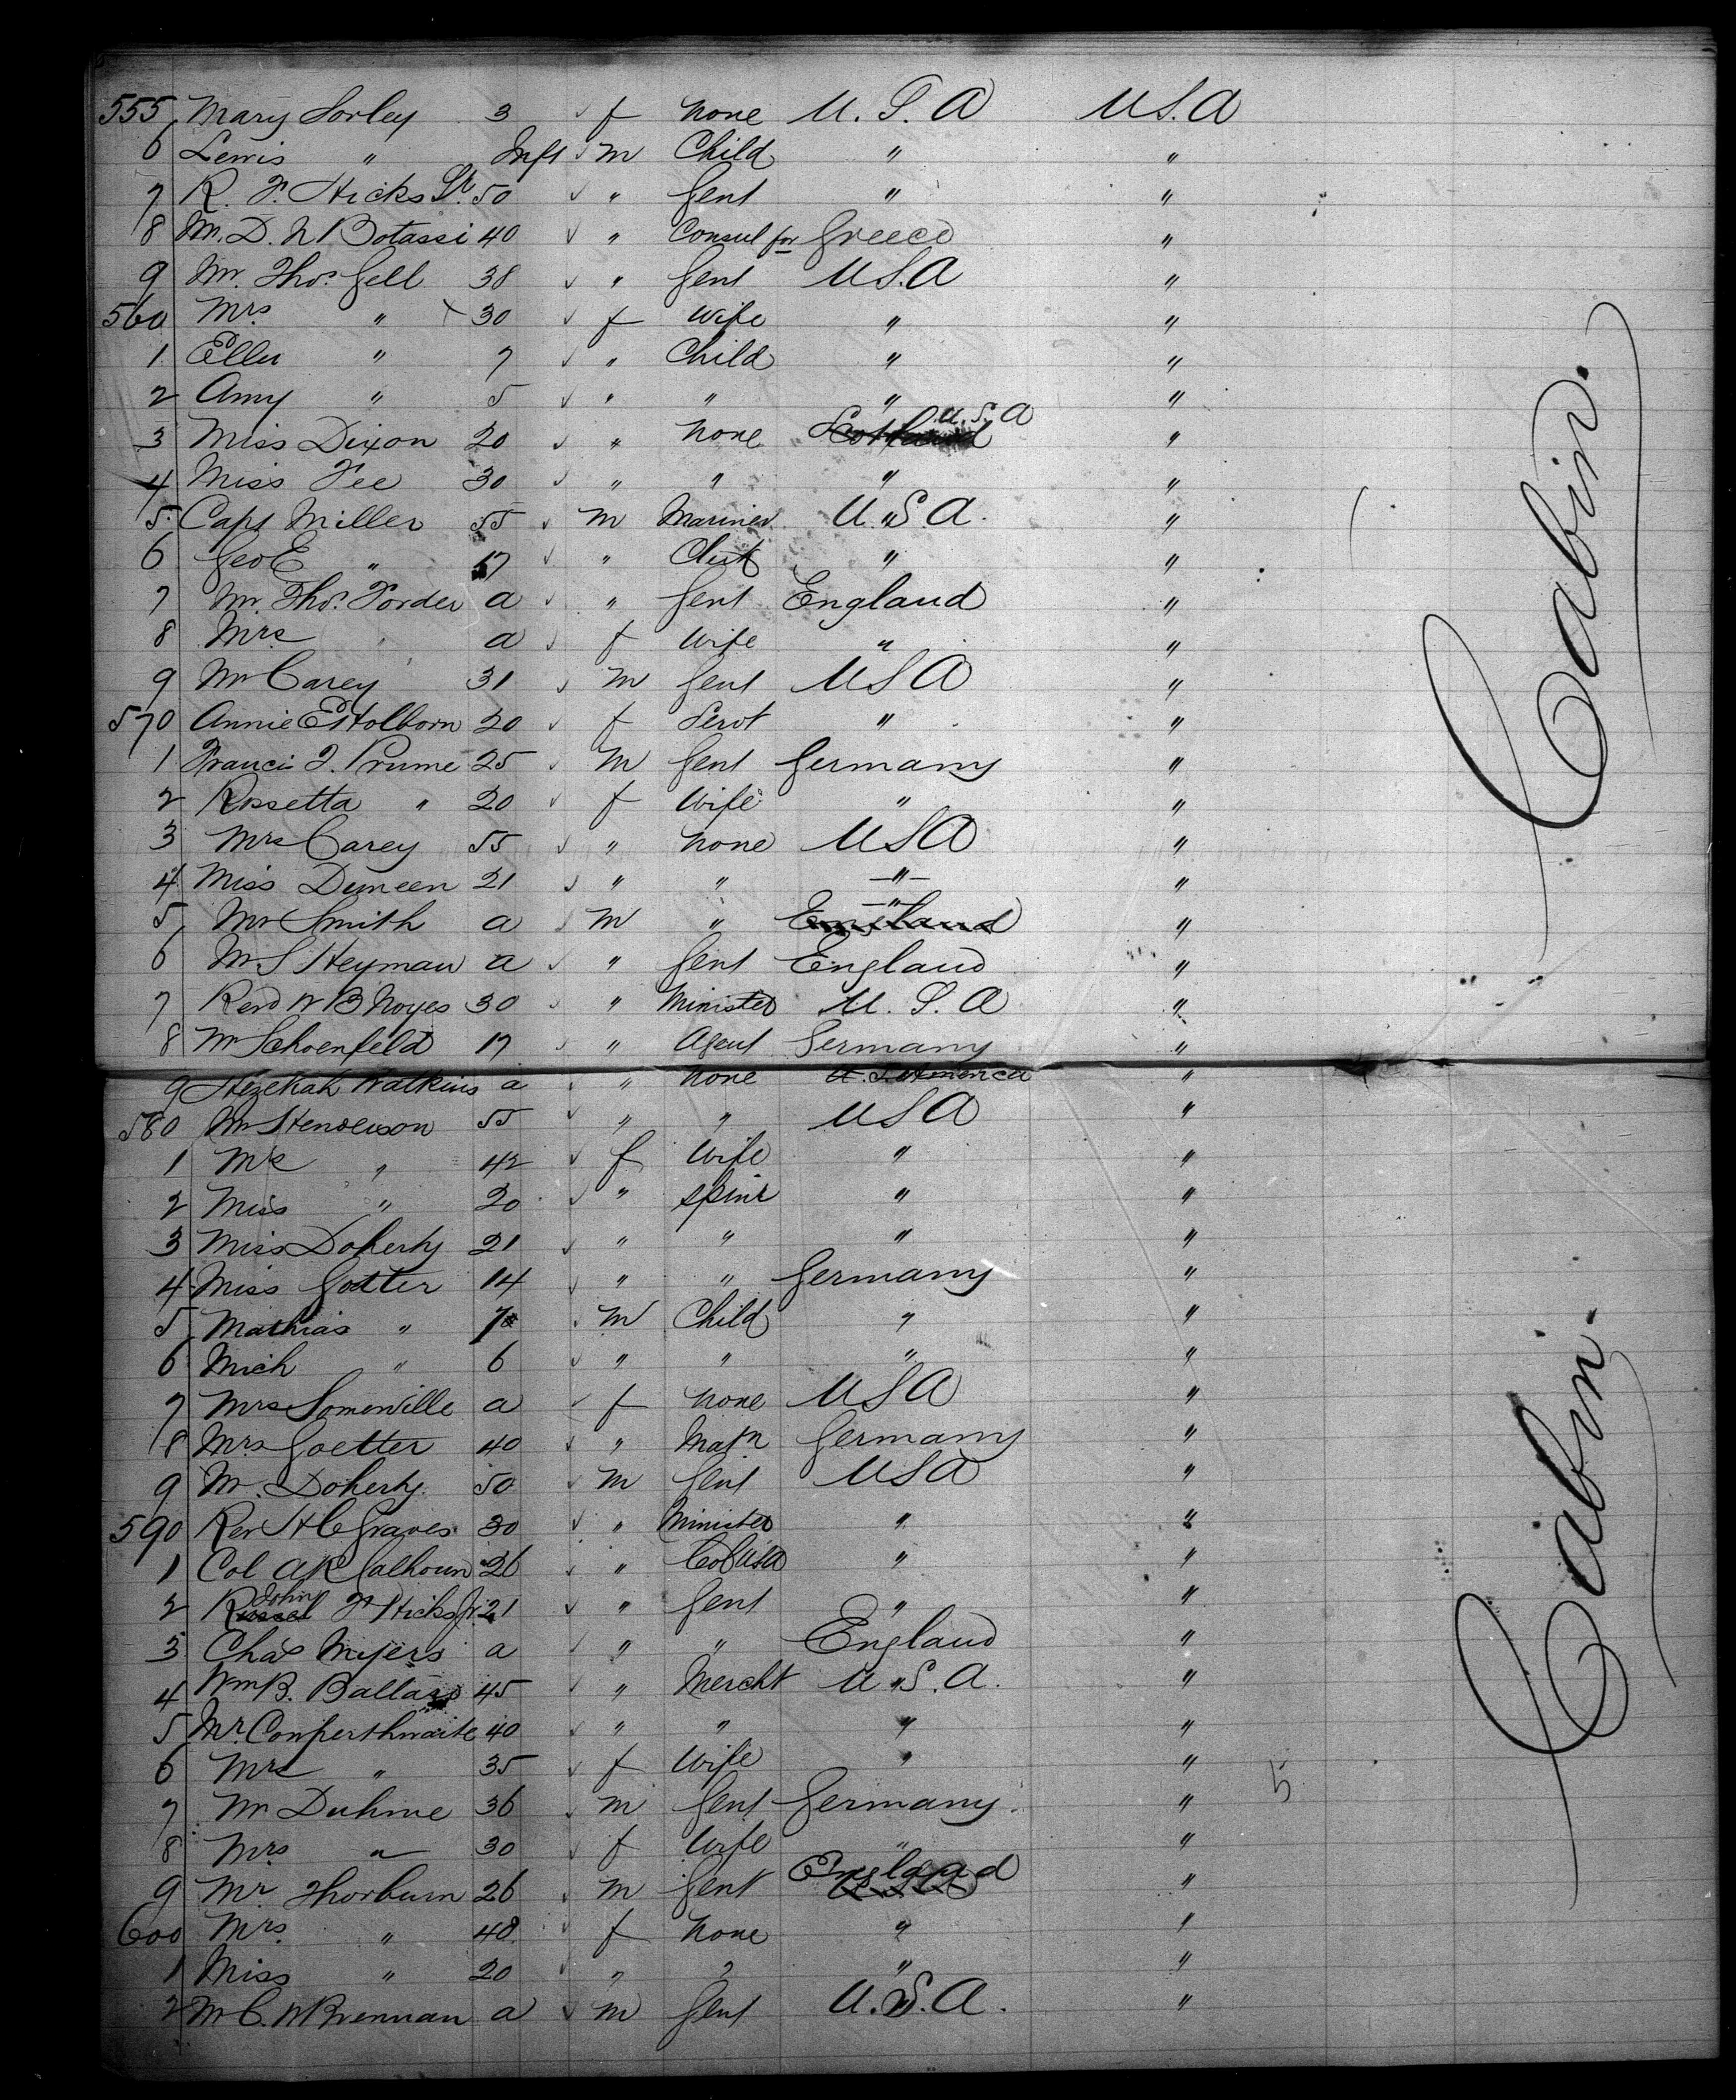 555 Mary Sorley 3 ✓ f none U.S.A U.S.A
6 Lewis " Inft ✓ m Child " "
7 R. F. Hicks Sr. 50 ✓ " Gent " "
8 Mr. D. N Botassi 40 ✓ " Consul for Greece "
9 Mr. Thos. Gell 38 ✓ " Gent U.S.A "
560 Mrs. " 30 ✓ f Wife " "
1 Ellen " 7 ✓ " Child " "
2 Amy " 5 ✓ " " " "
3 Miss Dixon 20 ✓ " none Scotland U.S.A "
4 Miss Fee 30 ✓ " " " "
5 Capt Miller 55 ✓ m Mariner U.S.A. "
6 Geo E " 17 ✓ " Clerk " "
7 Mr. Thos. Forder a ✓ " Gent England "
8 Mrs a ✓ f Wife " "
9 Mr Carey 31 ✓ m Gent USA "
570 Annie E Holborn 20 ✓ f Servt " "
1 Francis J. Prume 25 ✓ m Gent Germany "
2 Rossetta " 20 ✓ f Wife " "
3 Mrs Carey 55 ✓ " none USA "
4 Miss Duncen 21 ✓ " " " "
5 Mr Smith a ✓ m " England " "
6 M S Heyman a ✓ " Gent England "
7 Revd W B Noyes 30 ✓ " Minister U.S.A "
8 Mr Schoenfeld 17 ✓ " Agent Germany "
9 Hezekah Watkins a ✓ " none U.S. America "
580 Mr Henderson 55 ✓ " " USA "
1 Mrs " 42 ✓ f Wife " "
2 Miss " 20 ✓ " spinr " "
3 Miss Doherty 21 ✓ " " " "
4 Miss Gotter 14 ✓ " " Germany "
5 Mathias " 7 ✓ m Child " "
6 Mich " 6 ✓ " " " "
7 Mrs Somerville a ✓ f none USA "
8 Mrs Goetter 40 ✓ " Matn Germany "
9 Mr. Doherty 50 ✓ m Gent USA "
590 Rev H C Graves 30 ✓ " Minister " "
1 Col A R Calhoun 26 ✓ " Col USA " "
2 Russel John F Hicks Jr. 21 ✓ " Gent " "
3 Chas Myers a ✓ " " England "
4 Wm B. Ballard 45 ✓ " Mercht U.S.A. "
5 Mr. Cowperthwaite 40 ✓ " " " "
6 Mrs " 35 ✓ f Wife " "
7 Mr Duhme 36 ✓ m Gent Germany "
8 Mrs " 30 ✓ f Wife " "
9 Mr Thorburn 26 ✓ m Gent England "
600 Mrs. " 48 ✓ f none " "
1 Miss " 20 " " " "
2 M C. W Brennan a ✓ m Gent U.S.A. "
Cabin.
Cabin.
5